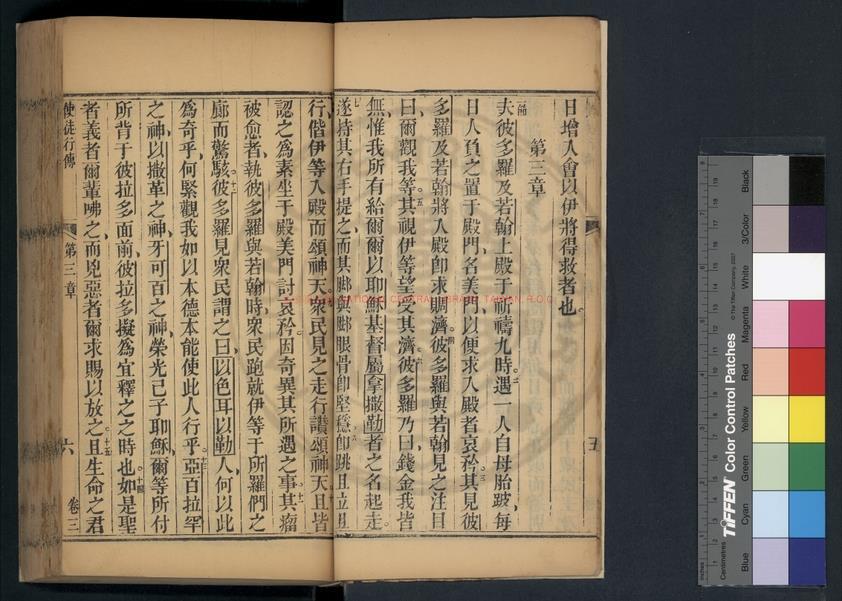 日增人會以伊將得救者也
第三章
夫彼多羅及若翰上殿于祈禱九時遇一人自母胎跛每
日人負之置于殿門名美門以便求入殿者哀矜其見彼
多羅及若翰將入殿卽求賙濟彼多羅與若翰見之注目
曰爾觀我等其視伊等望受其濟彼多羅乃曰錢金我皆
無惟我所有給爾爾以耶穌基督屬拿撒勒者之名起走
遂持其右手提之而其腳與腳眼骨卽堅穩卽跳且立且
行偕伊等入殿而頌神天衆民見之走行讚頌神天且皆
認之爲素坐于殿美門討哀矜因奇異其所遇之事其瘤
被愈者執彼多羅與若翰時衆民跑就伊等于所羅們之
廊而驚駭彼多羅見衆民謂之曰以色耳以勒人何以此
爲奇乎何緊觀我如以本德本能使此人行乎亞百拉罕
之神以撒革之神牙可百之神榮光己子耶穌爾等所付
所背于彼拉多面前彼拉多擬爲宜釋之之時也如是聖
者義者爾輩咈之而兇惡者爾求賜以放之且生命之君
五
使徒行傳
第三章
六
卷三
NATIONAL CENTRAL LIBRARY, TAIWAN, R.O.C.
TIFFEN Color Control Patches
© The Tiffen Company, 2007
Centimetres
Inches
Blue
Cyan
Green
Yellow
Red
Magenta
White
3/Color
Black